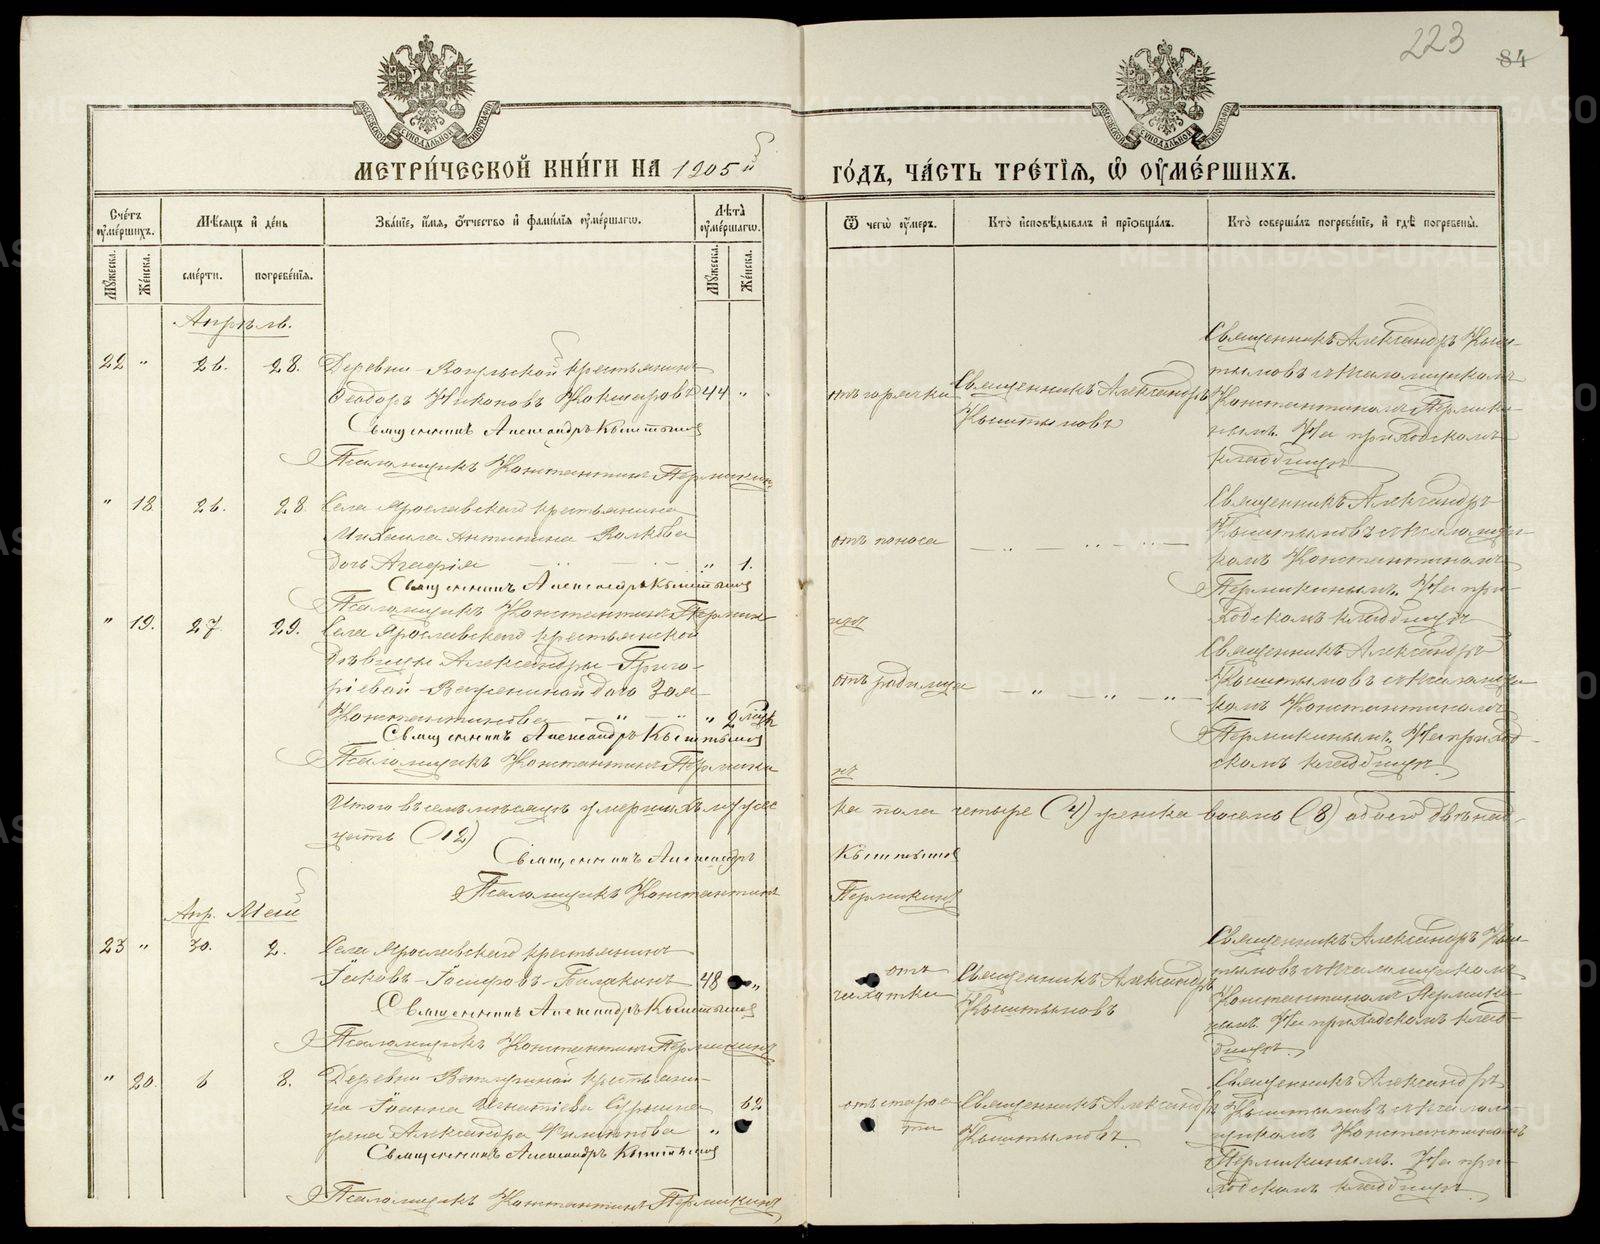 223
84
МЕТРИ́ЧЕСКОЙ КНИ́ГИ НА 1905й
ГО́ДЪ, ЧА́СТЬ ТРЕ́ТІѦ, Ѡ҆ ОУ҆МЕ́РШИХЪ.
Сче́тъ оу҆ме́ршихъ.
Мѣ́сяцъ и҆ де́нь
Зва́ніе, и҆́мя, ѻ҆́тчество и҆ фами́лія оу҆ме́ршагѡ.
Лѣ́та оу҆ме́ршагѡ.
Ѿ чегѡ̀ оу҆́меръ.
Кто̀ и҆сповѣ́дывалъ и҆ прїѡбща́лъ.
Кто̀ соверша́лъ погребе́ніе, и҆ гдѣ̀ погребены̀.
Мꙋ́жеска.
Же́нска.
сме́рти.
погребе́нія.
Мꙋ́жеска.
Же́нска.
Апрѣль.
22 " 26. 28. Деревни крестьянинъ
Ѳеодоръ Никоновъ Кокшаровъ 44 "
Священникъ Александръ Кыштымов
Псаломщикъ Константинъ Пермикинъ
отъ горячки
Священникъ Александръ
Кыштымовъ
Священникъ Александръ Кыш-
тымовъ съ псаломщикомъ
Константиномъ Пермики-
нымъ. На приходскомъ
кладбищѣ
" 18. 26. 28. Села Ярославскаго крестьянина
Михаила Антипина Волкова
дочь " 1.
Священникъ Александръ Кыштымов
Псаломщикъ Константинъ Пермик
инъ
отъ поноса
— " — " — " —
Священникъ Александръ
Кыштымовъ съ псаломщи-
комъ Константиномъ
Пермикинымъ. На при-
ходскомъ кладбищѣ
" 19. 27 29. Села Ярославскаго крестьянской
дѣвицы Александры Григо-
ріевой дочь Зоя
Константинова — " — " " 2 мѣс
Священникъ Александръ Кыштымов
Псаломщикъ Константинъ Пермики
нъ
отъ родимца
— " — " — " —
Священникъ Александръ
Кыштымовъ съ псаломщи-
комъ Константиномъ
Пермикинымъ. На приход-
скомъ кладбищѣ.
Итого въ семъ мѣсяцѣ умершихъ мужес
ка пола четыре (4) женска восемь (8) обоего двѣнад-
цать (12)
Священникъ Александръ
Кыштымов
Псаломщикъ Константинъ
Пермикинъ
Апр. Май
23 " 30. 2. Села Ярославскаго крестьянинъ
Іаковъ Іосифовъ 48 "
Священникъ Александръ Кыштымов
Псаломщикъ Константинъ Пермикинъ
отъ
чахотки
Священникъ Александръ
Кыштымовъ
Священникъ Александръ Кыш-
тымовъ съ псаломщикомъ
Константиномъ Пермики-
нымъ. На приходскомъ клад-
бищѣ.
" 20. 6 8. Деревни крестьяни-
на Іоанна Игнатіева
жена Александра Филиппова " 62
Священникъ Александръ Кыштымов
Псаломщикъ Константинъ Пермикинъ
отъ старос
ти
Священникъ Александръ
Кыштымовъ.
Священникъ Александръ
Кыштымовъ съ псалом-
щикомъ Константиномъ
Пермикинымъ. На при-
ходскомъ кладбищѣ.
METRIKI.GASO-URAL.RU